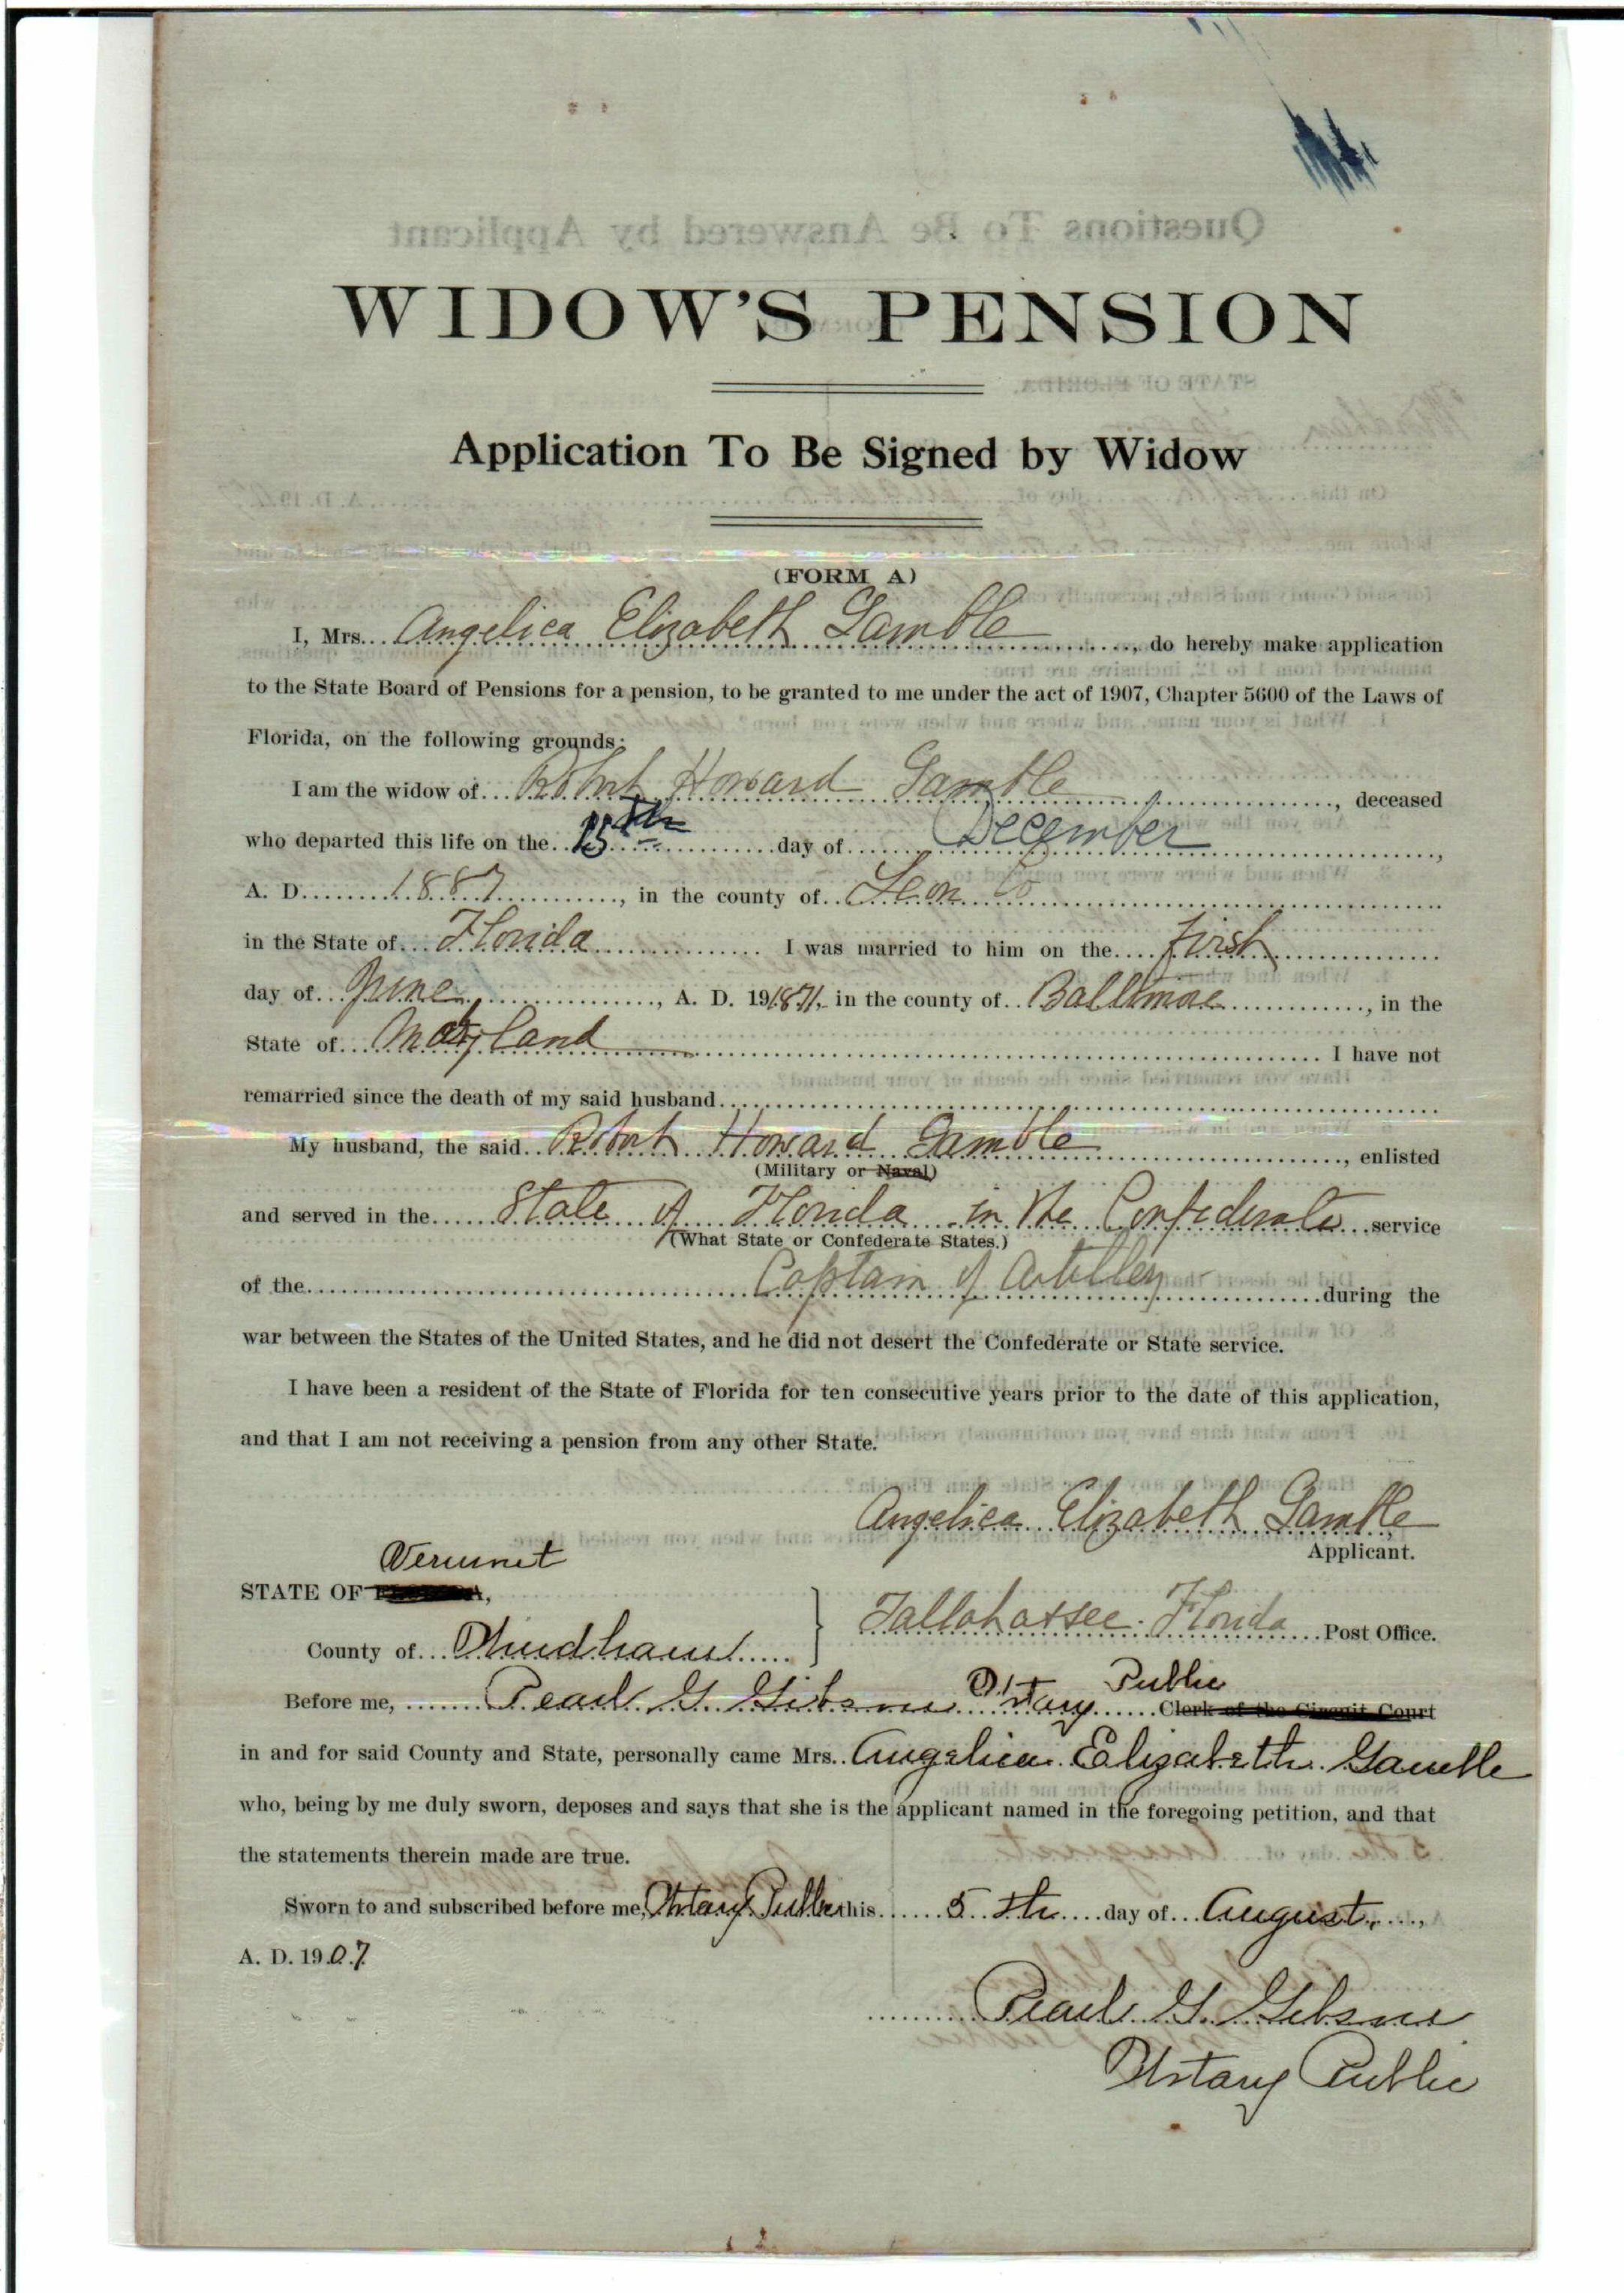 WIDOW'S PENSION
Application To Be Signed by Widow
(FORM A)
I, Mrs. Angelica Elizabeth Gamble, do hereby make application
to the State Board of Pensions for a pension, to be granted to me under the act of 1907, Chapter 5600 of the Laws of
Florida, on the following grounds:
I am the widow of Robert Howard Gamble, deceased
who departed this life on the 15th day of December,
A. D. 1887, in the county of Leon Co
in the State of Florida I was married to him on the first
day of June, A. D. 191871, in the county of Baltimore, in the
State of Maryland I have not
remarried since the death of my said husband
My husband, the said Robert Howard Gamble, enlisted
(Military or Naval)
and served in the State of Florida in the Confederate service
(What State or Confederate States.)
of the Captain of Artillery during the
war between the States of the United States, and he did not desert the Confederate or State service.
I have been a resident of the State of Florida for ten consecutive years prior to the date of this application,
and that I am not receiving a pension from any other State.
Angelica Elizabeth Gamble
Applicant.
Vermont
STATE OF
County of Windham
Tallahassee. Florida Post Office.
Before me, Pearl G. Gibson Notary Public Clerk of the Circuit Court
in and for said County and State, personally came Mrs. Angelica Elizabeth Gamble
who, being by me duly sworn, deposes and says that she is the applicant named in the foregoing petition, and that
the statements therein made are true.
Sworn to and subscribed before me, Notary Public this 5th day of August,
A. D. 1907
Pearl G. Gibson
Notary Public